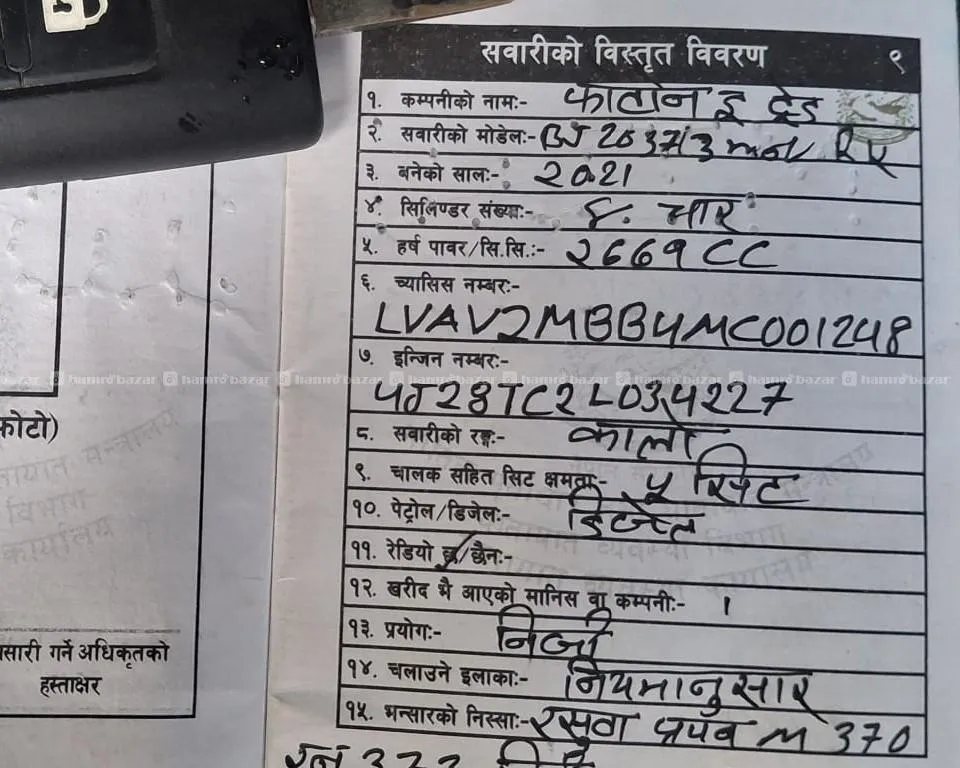 सवारीको विस्तृत विवरण ९
१. कम्पनीको नाम:- फोटोन इ ट्रेड
२. सवारीको मोडेल:- BJ 2037
३. बनेको साल:- 2021
४. सिलिण्डर संख्या:- ४. चार
५. हर्ष पावर/सि.सि.:- 2669 CC
६. च्यासिस नम्बर:-
LVAV2MBB4MC001248
७. इन्जिन नम्बर:-
hamro bazar hamro bazar hamro bazar hamro bazar hamro bazar hamro bazar hamro bazar hamro bazar
4J28TC2L034227
८. सवारीको रङ्ग:- कालो
९. चालक सहित सिट क्षमता:- ५ सिट
१०. पेट्रोल/डिजेल:- डिजेल
११. रेडियो छ/छैन:-
१२. खरीद भै आएको मानिस वा कम्पनी:- ।
१३. प्रयोग:- निजी
१४. चलाउने इलाका:- नियमानुसार
१५. भन्सारको निस्सा:- रसुवा प्रपत्र M 370
फोटो)
सारी गर्ने अधिकृतको
हस्ताक्षर